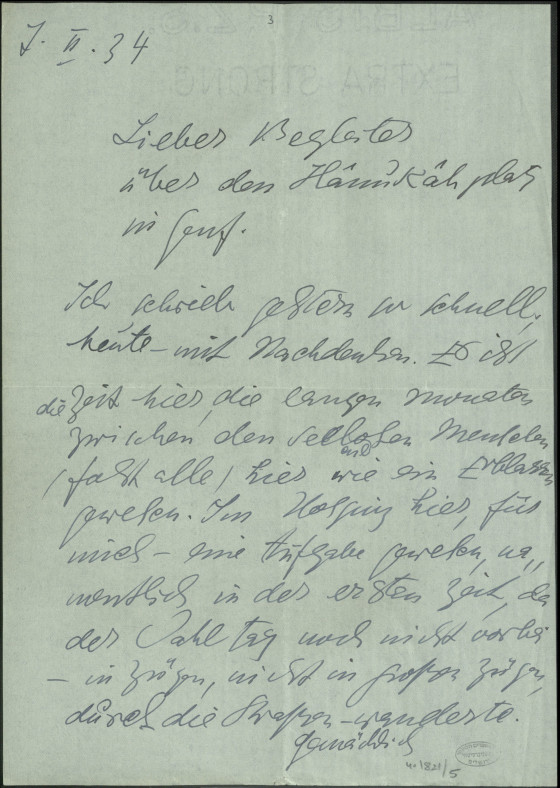 3
7. II. 34
Lieber Begleiter
über den
in Genf.
Ich schrieb gestern so schnell,
heute – mit Nachdenken. Es ist
die Zeit hier, die langen Monaten
zwischen den seellosen Menschen
(fast alle) hier wie ein Erblassen
gewesen. Im hier, für
mich – eine Aufgabe gewesen, na,,
mentlich in der ersten Zeit, da
der Wahltag noch nicht vorbei
– in Zügen, nicht in großen Zügen,
durch die Strassen – wanderte.
gemächlich
4. 1821/5
EXTRA STRONG